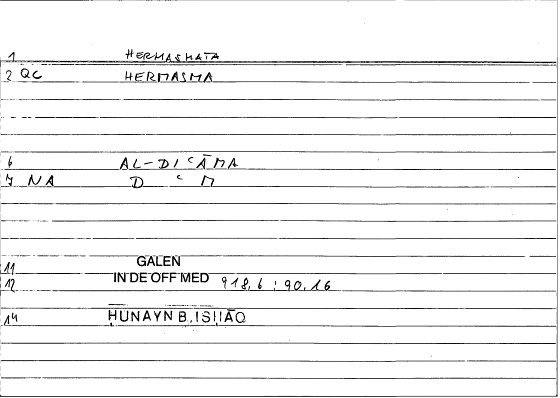 1 HERMASMATA
2 QC HERMASMA
6 AL-DIʿĀMA
7 NA D ʿ M
11 GALEN
12 IN DE OFF MED 918,6 : 90.16
14 ḤUNAYN B. ISḤĀQ